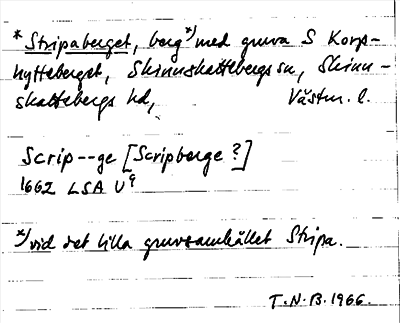 * Stripaberget, berg *) med gruva S Korp-
hytteberget, Skinnskattebergs sn, Skinn-
skattebergs hd, Västm. l.
Scrip--ge [Scripberge ?]
1662 LSA U 9
*) vid det lilla gruvsamhället Stripa.
T.N.B. 1966.